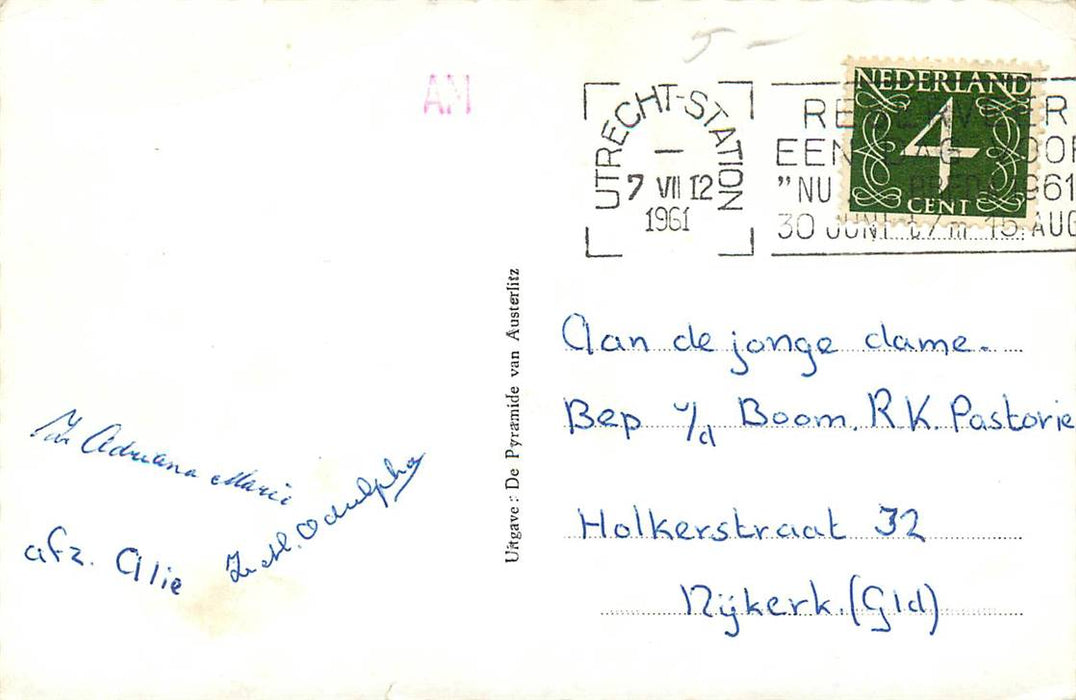 AM
UTRECHT-STATION
7 VII 12
1961
EEN DAG
"NU BREDA 1961
30 JUNI t/m 15 AUG
NEDERLAND
4
CENT
Uitgave: De Pyramide van Austerlitz
Aan de jonge dame.
Bep v/d Boom. R.K. Pastorie
Holkerstraat 32
Nijkerk. (Gld)
Zr Adriana Marie
Zr M. Odulpha
afz. Alie